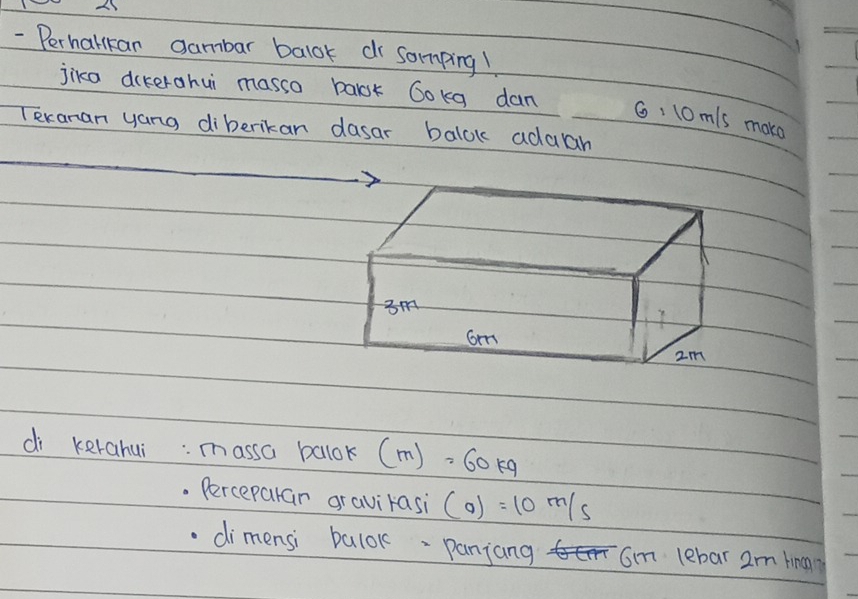 - Perhatikan gambar balok di samping!
jika diketahui massa balok 60 kg dan G : 10 m/s maka
Tekanan yang diberikan dasar balok adalah
3m
6m
2m
di ketahui : massa balok (m) = 60 kg
• Percepatan gravitasi (a) = 10 m/s
• dimensi balok = panjang 6m lebar 2m tinggi